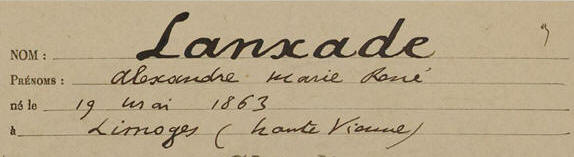 NOM : Lanxade
PRÉNOMS : Alexandre Marie René
né le 19 mai 1863
à Limoges (haute Vienne)